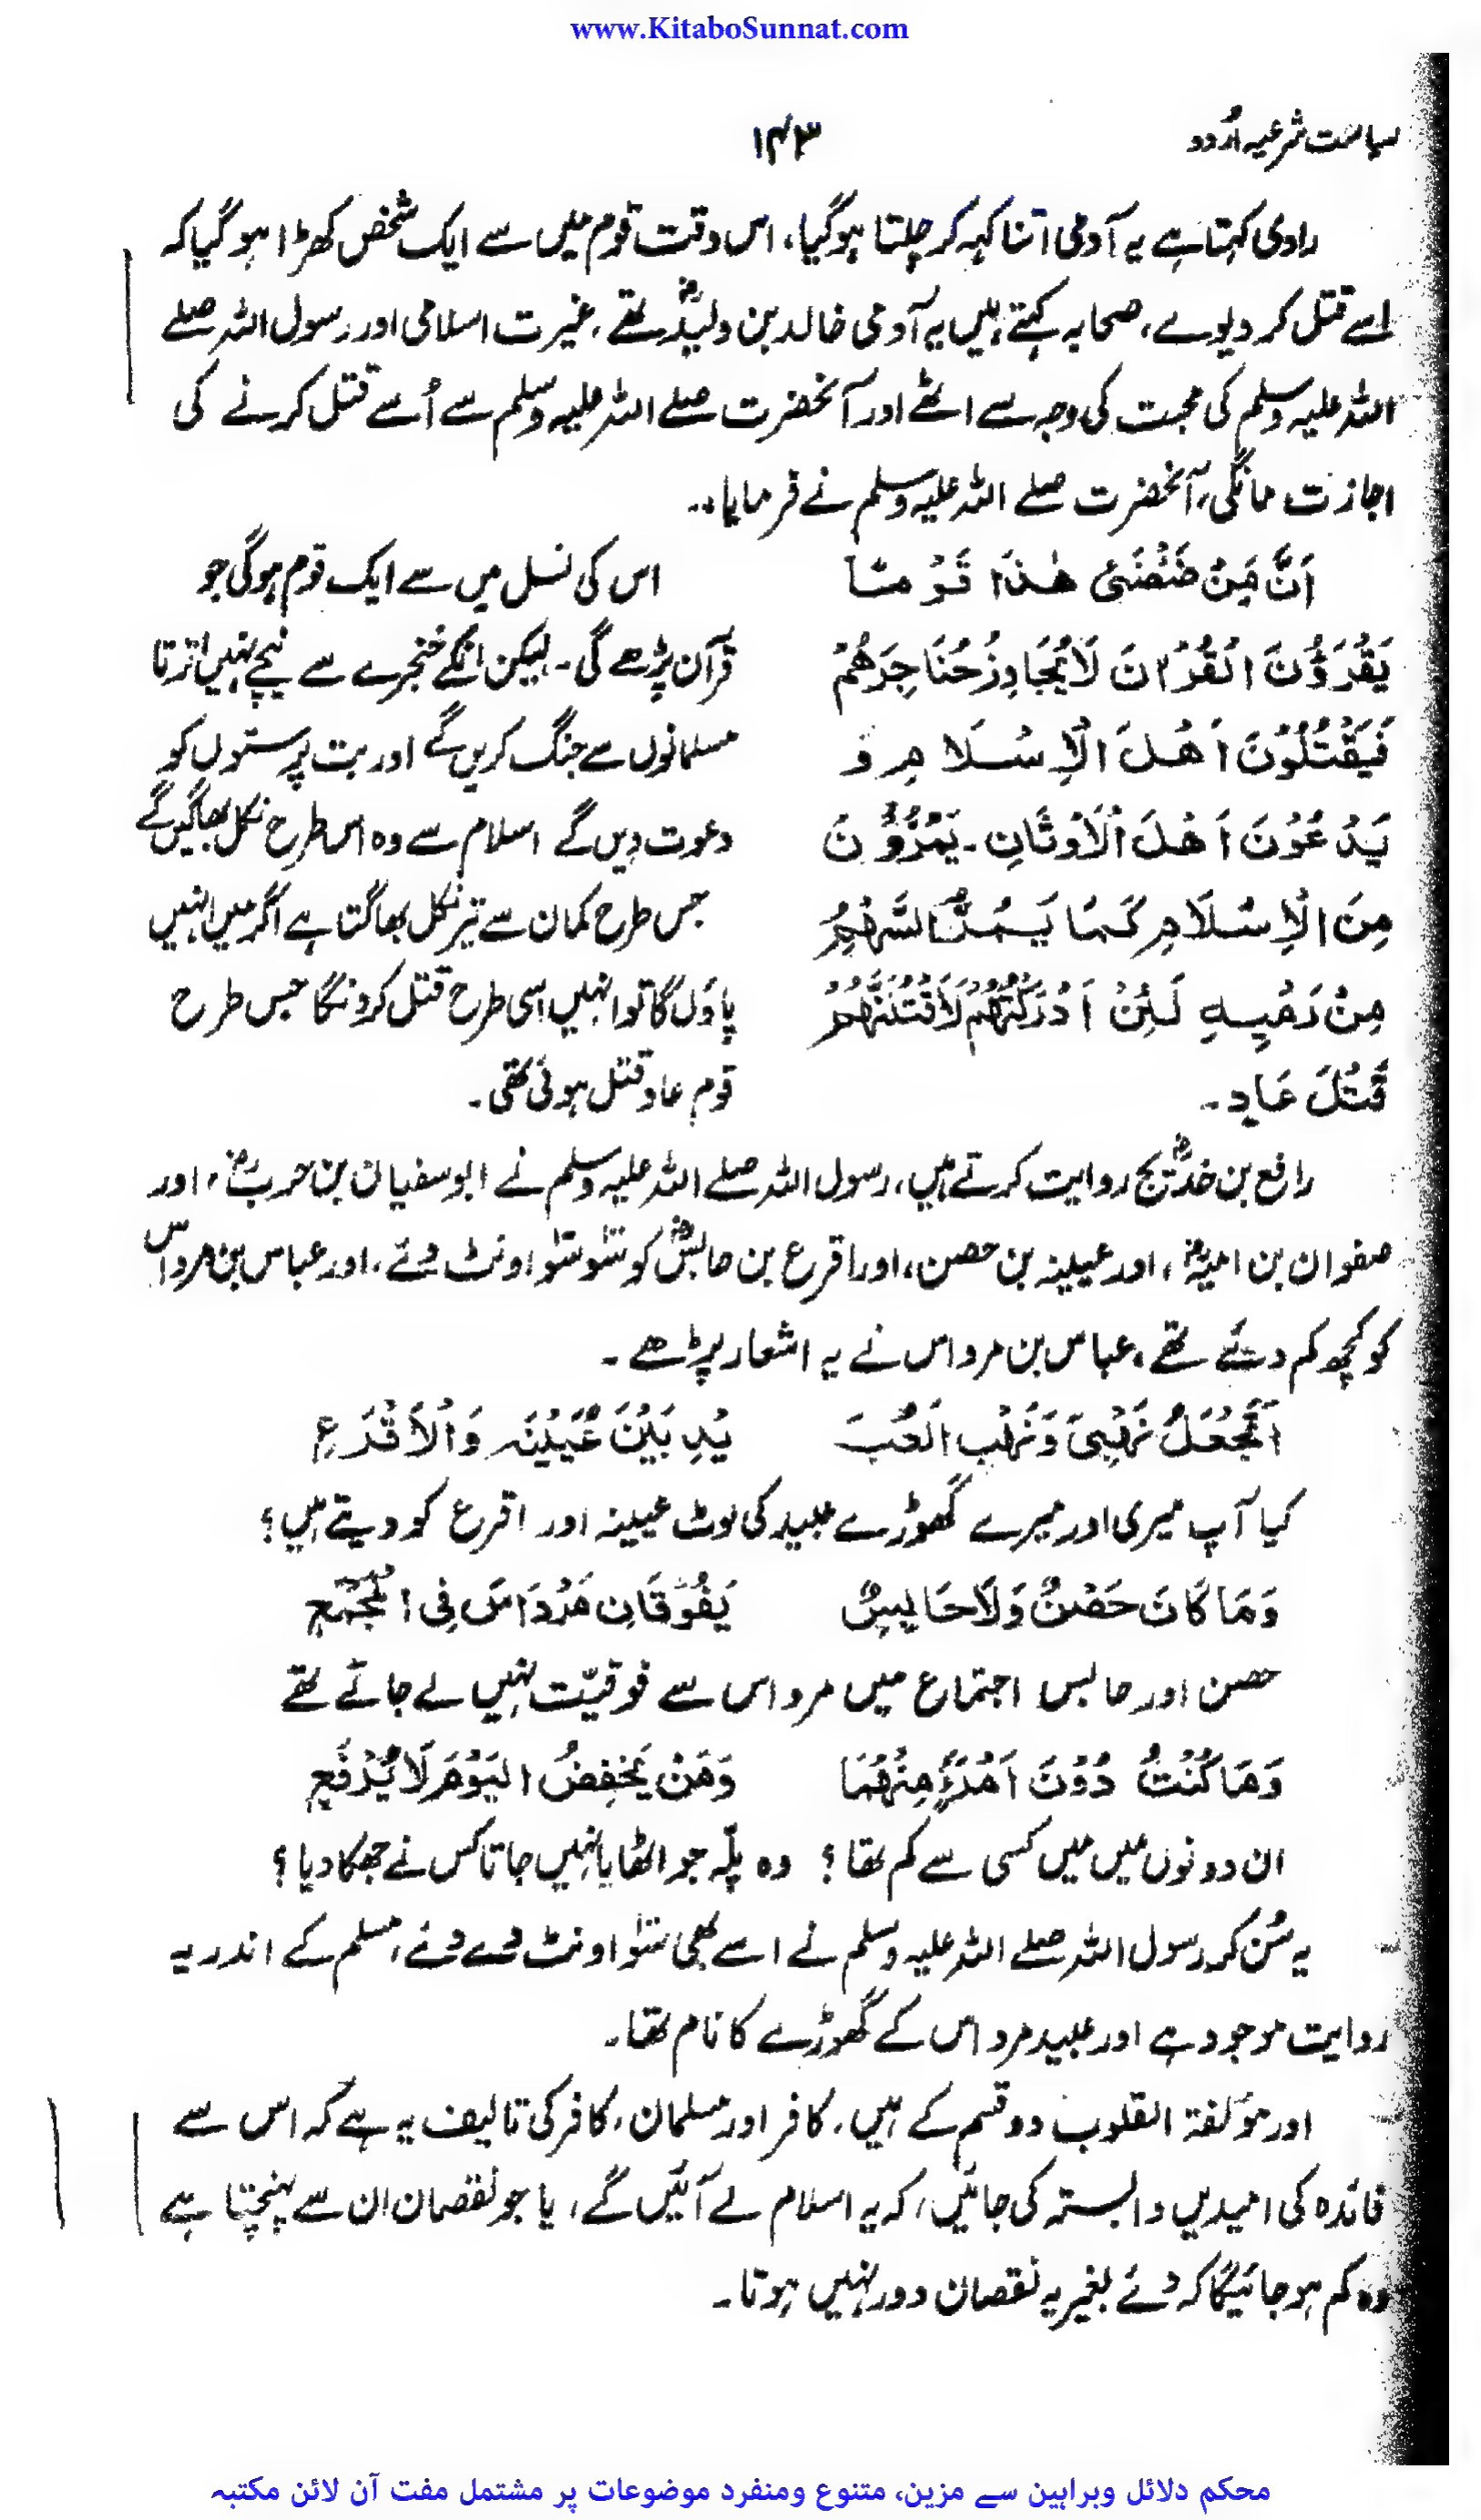 www.KitaboSunnat.com
سیاست شرعیہ اُردو
۱۴۳
راوی کہتا ہے یہ آدمی اتنا کہہ کر چلتا ہو گیا، اس وقت قوم میں سے ایک شخص کھڑا ہو گیا کہ
اسے قتل کر دیوے، صحابہ کہتے ہیں یہ آدمی خالد بن ولیدؓ تھے، غیرت اسلامی اور رسول اللہ صلے
اللہ علیہ وسلم کی محبت کی وجہ سے اٹھے اور آنحضرت صلے اللہ علیہ وسلم سے اُسے قتل کرنے کی
اجازت مانگی، آنحضرت صلے اللہ علیہ وسلم نے فرمایا۔۔
اَنَّ مِنْ ضَئْضَئِ هٰذَا قَوْمًا
اس کی نسل میں سے ایک قوم ہوگی جو
يَقْرَؤُنَ الْقُرْاٰنَ لَا يُجَاوِزُ حَنَاجِرَهُمْ
قرآن پڑھے گی۔ لیکن انکے خنجرے سے نیچے نہیں اترتا
فَيَقْتُلُوْنَ اَهْلَ الْاِسْلَامِ وَ
مسلمانوں سے جنگ کریں گے اور بت پرستوں کو
يَدْعُوْنَ اَهْلَ الْاَوْثَانِ۔ يَمْرُقُوْنَ
دعوت دیں گے اسلام سے وہ اس طرح نکل بھاگیں گے
مِنَ الْاِسْلَامِ كَمَا يَمُرُّ السَّهْمُ
جس طرح کمان سے تیر نکل بھاگتا ہے اگر میں انہیں
مِنْ رَمْيِهٖ لَئِنْ اَدْرَكْتُهُمْ لَاَقْتُلَنَّهُمْ
پاؤں گا تو انہیں اسی طرح قتل کرونگا جس طرح
قَتْلَ عَادٍ۔
قوم عاد قتل ہوئی تھی۔
رافع بن خدیجؓ روایت کرتے ہیں، رسول اللہ صلے اللہ علیہ وسلم نے ابوسفیان بن حربؓ، اور
صفوان بن امیہؓ، اور عیینہ بن حصن، اور اقرع بن حابسؓ کو سَو سَو اونٹ دئے، اور عباس بن مرداس
کو کچھ کم دئے تھے، عباس بن مرداس نے یہ اشعار پڑھے۔
اَتَجْعَلُ نَهْبِيْ وَنَهْبَ الْعُبَ
يْدِ بَيْنَ عُيَيْنَهَ وَالْاَقْرَعِ
کیا آپ میری اور میرے گھوڑے عبید کی لوٹ عیینہ اور اقرع کو دیتے ہیں؟
وَمَا كَانَ حَصْنٌ وَلَا حَابِسٌ
يَفُوْقَانِ مَرْدَاسَ فِى الْمَجْمَعِ
حصن اور حابس اجتماع میں مرداس سے فوقیّت نہیں لے جاتے تھے
وَمَا كُنْتُ دُوْنَ اَمْرَءٍ مِنْهُمَا
وَمَنْ يَخْفِضُ الْيَوْمَ لَا يُرْفَعِ
ان دونوں میں میں کسی سے کم تھا؟ وہ پلّہ جو اٹھایا نہیں جاتا کس نے جھکا دیا؟
یہ سُن کر رسول اللہ صلے اللہ علیہ وسلم نے اسے بھی سَو اونٹ دے دئے، مسلم کے اندر یہ
روایت موجود ہے اور عبید مرداس کے گھوڑے کا نام تھا۔
اور مؤلفۃ القلوب دو قسم کے ہیں، کافر اور مسلمان، کافر کی تالیف یہ ہے کہ اس سے
فائدہ کی امیدیں وابستہ کی جائیں، کہ یہ اسلام لے آئیں گے، یا جو نقصان ان سے پہنچتا ہے
وہ کم ہو جائیگا کہ دئے بغیر یہ نقصان دور نہیں ہوتا۔
محکم دلائل وبراہین سے مزین، متنوع ومنفرد موضوعات پر مشتمل مفت آن لائن مکتبہ